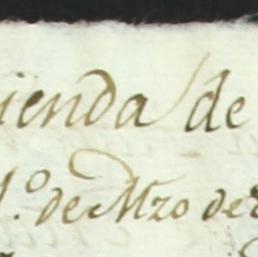 ienda de
1.º de Mzo de